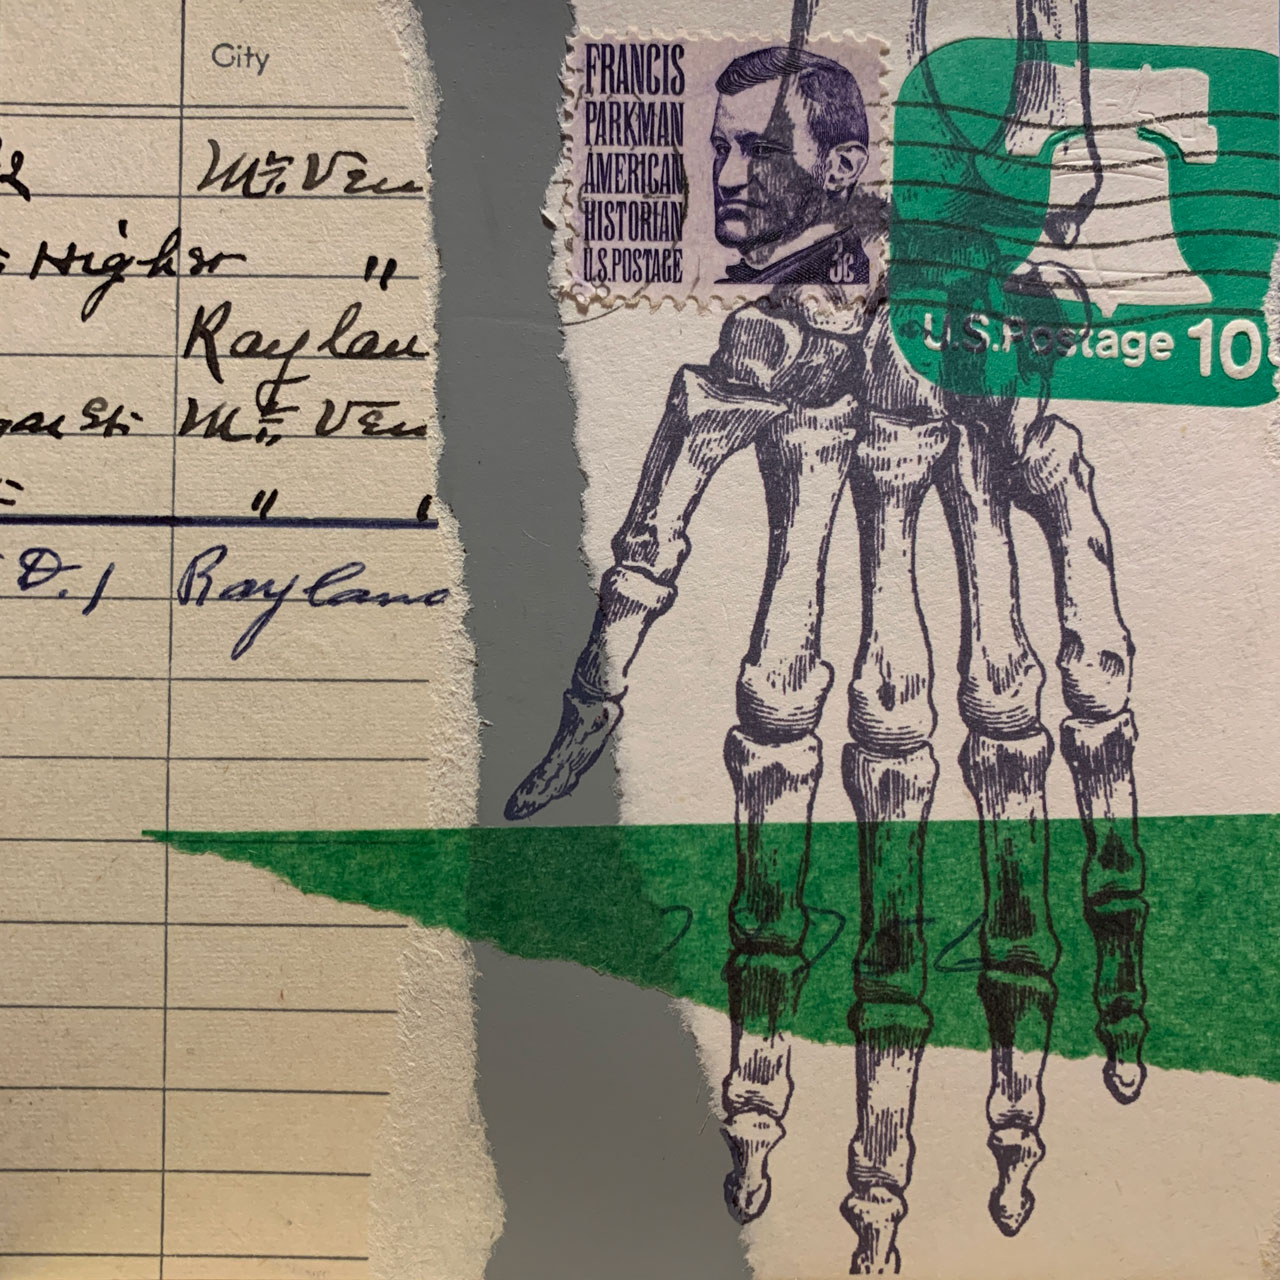 City
Mt. Ven
Higher "
Raylan
St. Mt. Ven
" "
D. 1 Rayland
FRANCIS
PARKMAN
AMERICAN
HISTORIAN
U.S. POSTAGE
3c
U.S. Postage 10¢